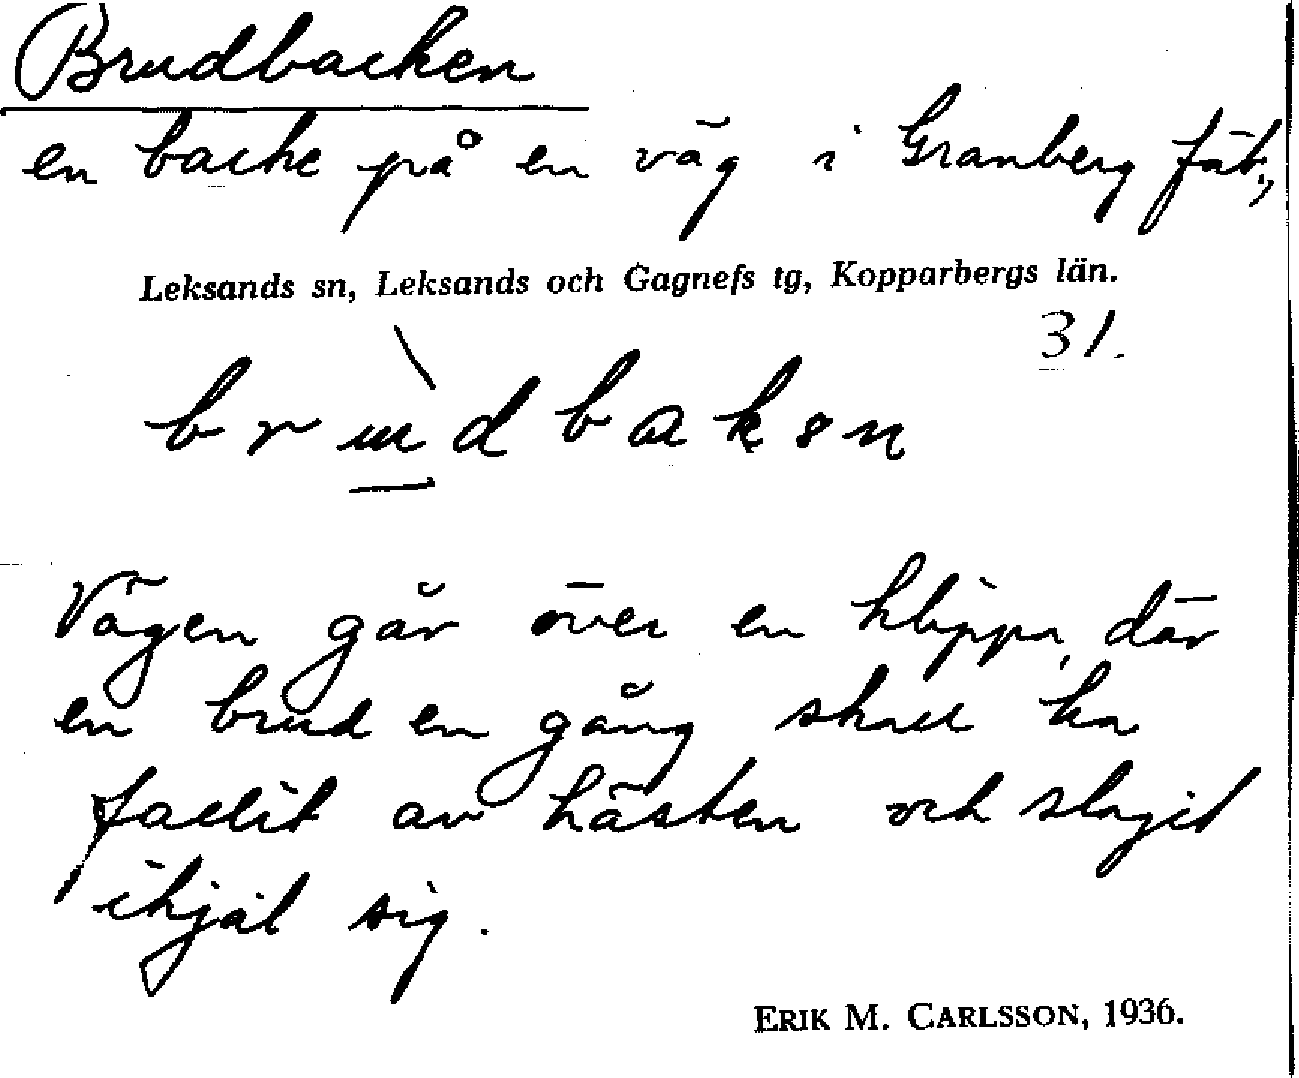 Brudbacken
en backe på en väg i Granberg fäb.,
Leksands sn, Leksands och Gagnefs tg, Kopparbergs län.
31.
brùdbakən
Vägen går över en klippa, där
en brud en gång skall ha
fallit av hästen och slagit
ihjäl sig.
ERIK M. CARLSSON, 1936.